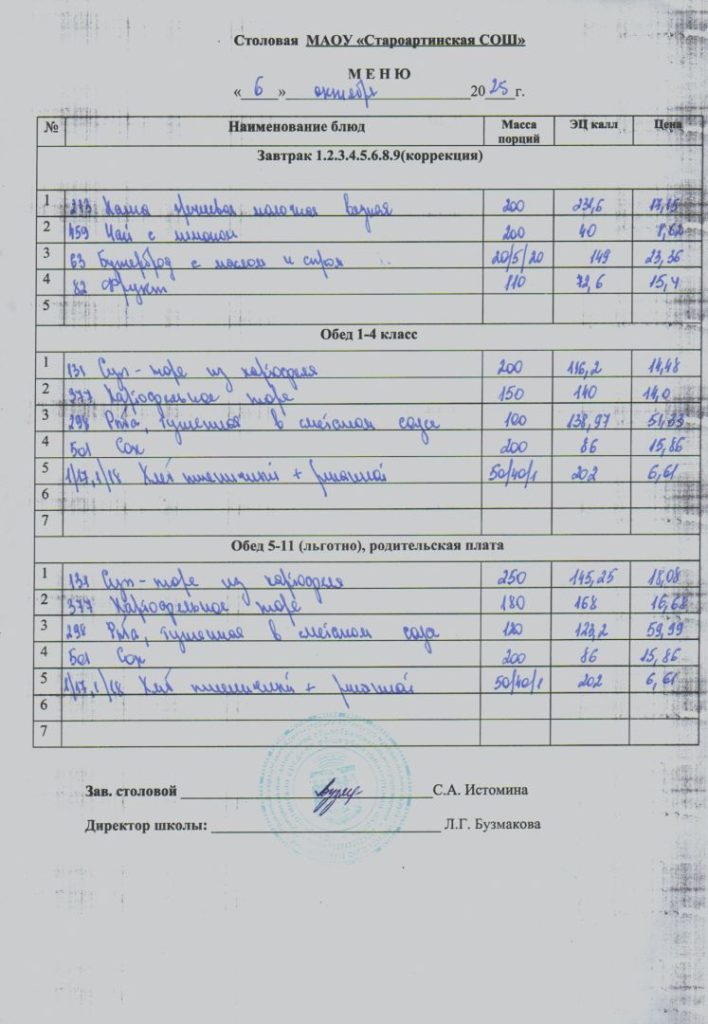 Столовая МАОУ «Староартинская СОШ»
М Е Н Ю
« 6 » октября 20 25 г.
№ Наименование блюд Масса порций ЭЦ калл Цена
Завтрак 1.2.3.4.5.6.8.9(коррекция)
1 Каша гречневая молочная вязкая 200
2 459 Чай с лимоном 200 40
3 63 Бутерброд с маслом и сыром 20/5/20 149 23,36
4 82 Фрукт 110 72,6 15,4
5
Обед 1-4 класс
1 131 Суп-пюре из картофеля 200 116,2 14,48
2 377 Картофельное пюре 150 140 14,0
3 298 Рыба, тушенная в сметаном соусе 100 138,97
4 501 Сок 200 86 15,86
5 1/17,1/18 Хлеб пшеничный + ржаной 50/40/1 202 6,61
6
7
Обед 5-11 (льготно), родительская плата
1 131 Суп-пюре из картофеля 250 145,25 18,08
2 377 Картофельное пюре 180 168 16,68
3 298 Рыба, тушенная в сметаном соусе 120 123,2 59,99
4 501 Сок 200 86 15,86
5 1/17,1/18 Хлеб пшеничный + ржаной 50/40/1 202 6,61
6
7
Зав. столовой С.А. Истомина
Директор школы: Л.Г. Бузмакова